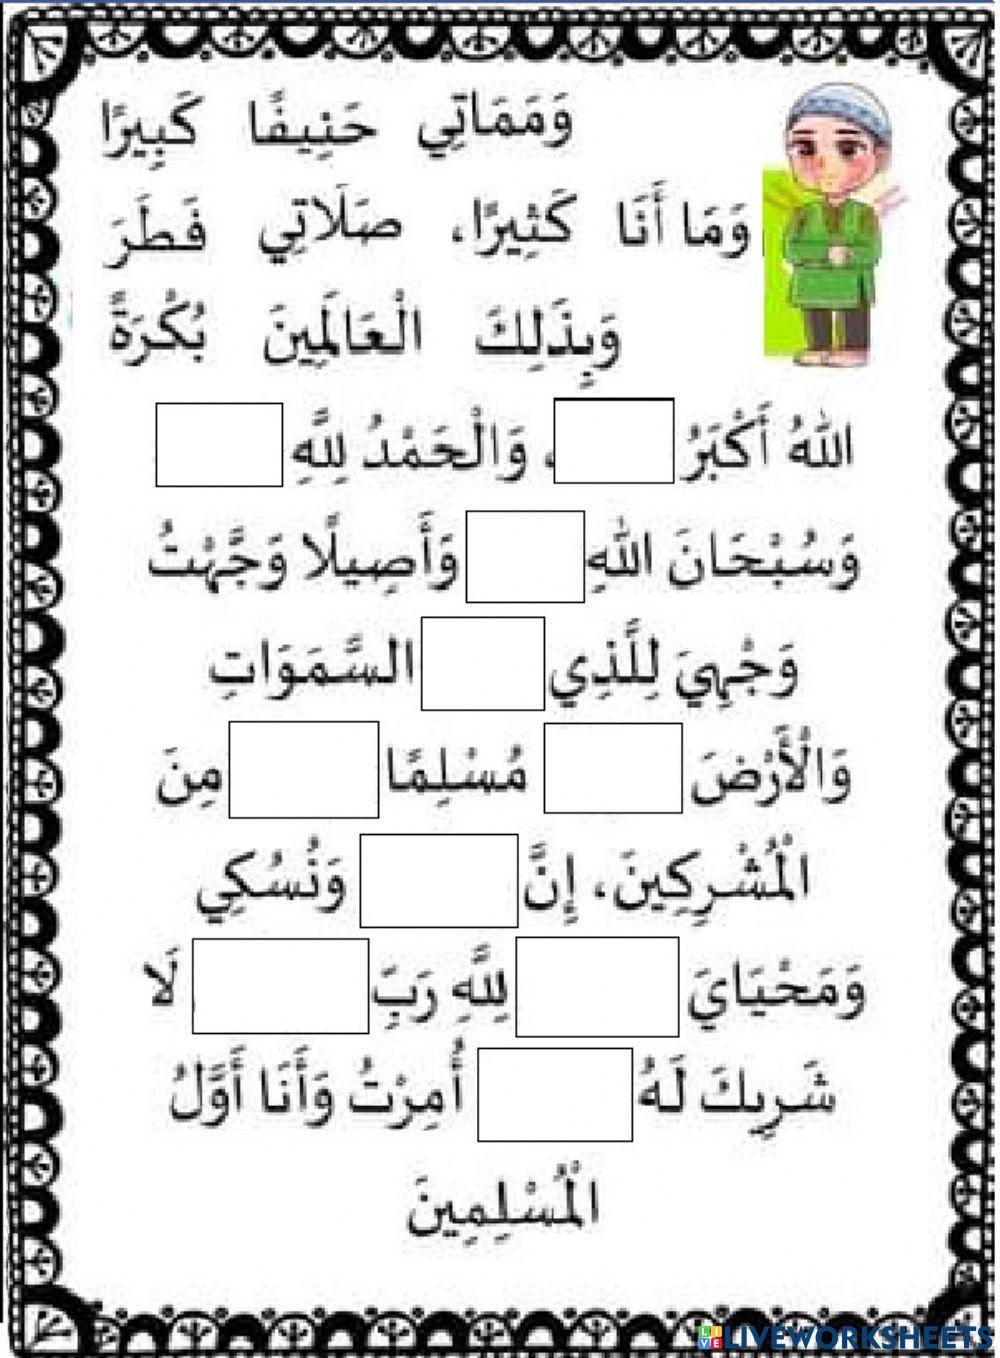 وَمَمَاتِي حَنِيفًا كَبِيرًا
وَمَا أَنَا كَثِيرًا، صَلَاتِي فَطَرَ
وَبِذَلِكَ الْعَالَمِينَ بُكْرَةً
اللهُ أَكْبَرُ ، وَالْحَمْدُ لِلَّهِ
وَسُبْحَانَ اللهِ وَأَصِيلًا وَجَّهْتُ
وَجْهِيَ لِلَّذِي السَّمَوَاتِ
وَالْأَرْضَ مُسْلِمًا مِنَ
الْمُشْرِكِينَ، إِنَّ وَنُسُكِي
وَمَحْيَايَ لِلَّهِ رَبِّ لَا
شَرِيكَ لَهُ أُمِرْتُ وَأَنَا أَوَّلُ
الْمُسْلِمِينَ
LIVE LIVEWORKSHEETS